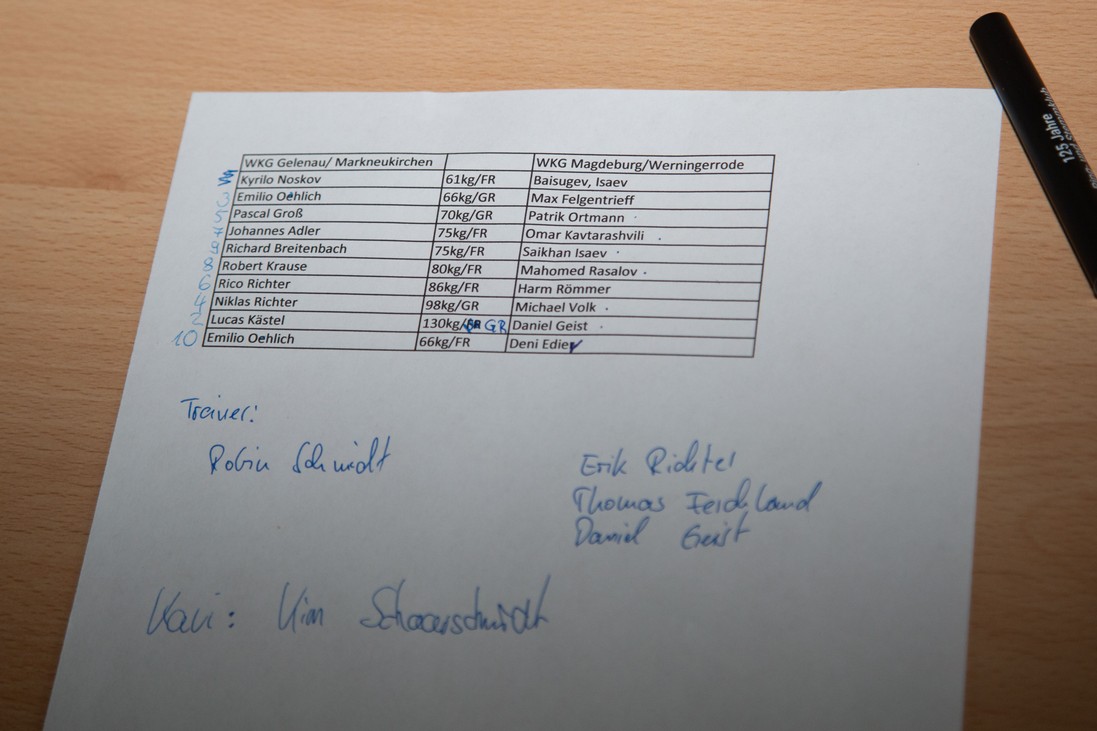 WKG Gelenau/ Markneukirchen WKG Magdeburg/Werningerrode
Kyrilo Noskov 61kg/FR Baisugev, Isaev
3 Emilio Oehlich 66kg/GR Max Felgentrieff
5 Pascal Groß 70kg/GR Patrik Ortmann
7 Johannes Adler 75kg/FR Omar Kavtarashvili
9 Richard Breitenbach 75kg/FR Saikhan Isaev
8 Robert Krause 80kg/FR Mahomed Rasalov
6 Rico Richter 86kg/FR Harm Römmer
4 Niklas Richter 98kg/GR Michael Volk
2 Lucas Kästel 130kg/ GR Daniel Geist
10 Emilio Oehlich 66kg/FR Deni Ediev
Trainer:
Robin Schmidt Erik Richter
Thomas
Daniel Geist
Kari: Kim
125 Jahre